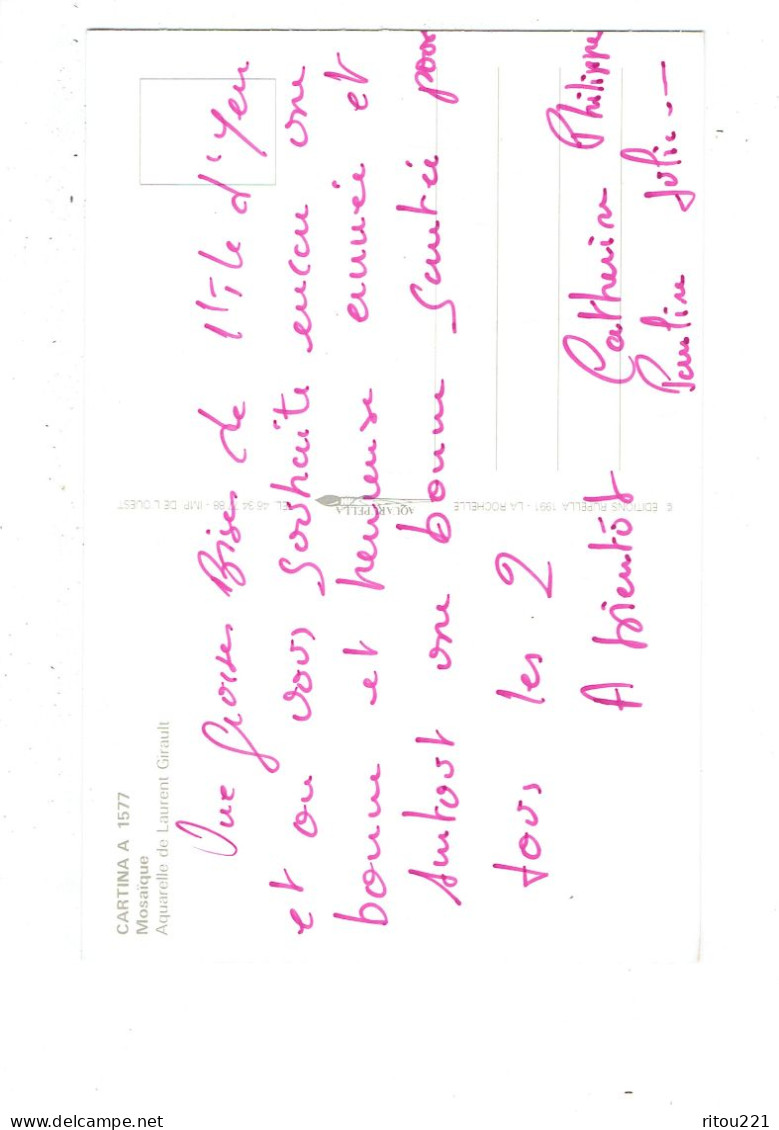 CARTINA A 1577
Mosaïque
Aquarelle de Laurent Girault
Une Grosse Bises de l'Île d'Yeu
et on vous souhaite encore une
bonne et heureuse année et
surtout une bonne santé pour
tous les 2
A bientôt Catherine Philippe
Pauline Julie
© EDITIONS RUPELLA 1991 - LA ROCHELLE
AQUARUPELLA
TEL. 46 34 88 - IMP. DE L'OUEST
ritou221